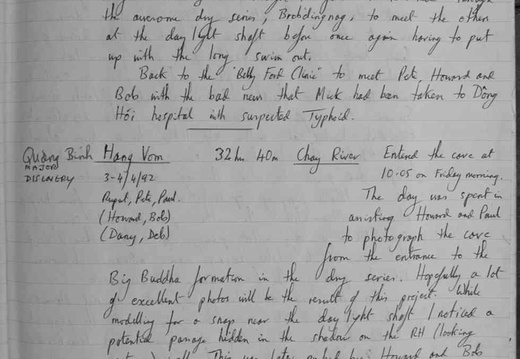 the awesome dry series, Brobdingnag, to meet the others
at the daylight shaft before once again having to put
up with the long swim out.
Back to the "Belly Ford Clinic" to meet Pete, Howard and
Bob with the bad news that Mick had been taken to Dông
Hói hospital with suspected Typhoid.
Quang Binh Hang Vom 32 hr 40m Chay River Entered the cave at
MAJOR DISCOVERY 3-4/4/92 10.05 on Friday morning.
Pete, Paul. The day was spent in
(Howard, Bob) assisting Howard and Paul
(Dany, Deb) to photograph the cave
from the entrance to the
Big Buddha formation in the dry series. Hopefully a lot
of excellent photos will be the result of this project. While
modelling for a snap near the daylight shaft I noticed a
potential passage hidden in the shadow on the RH (looking
This was later Howard and Bob